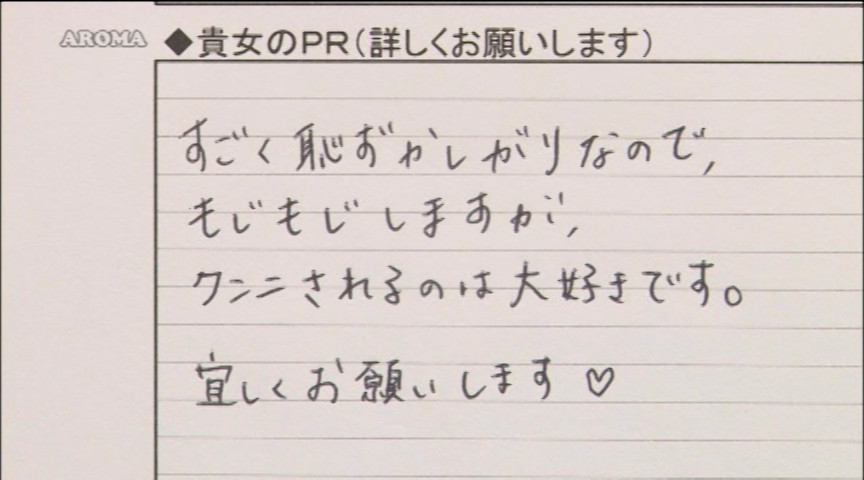 AROMA
◆貴女のPR(詳しくお願いします)
すごく恥ずかしがりなので,
もじもじしますが,
クンニされるのは大好きです。
宜しくお願いします♡